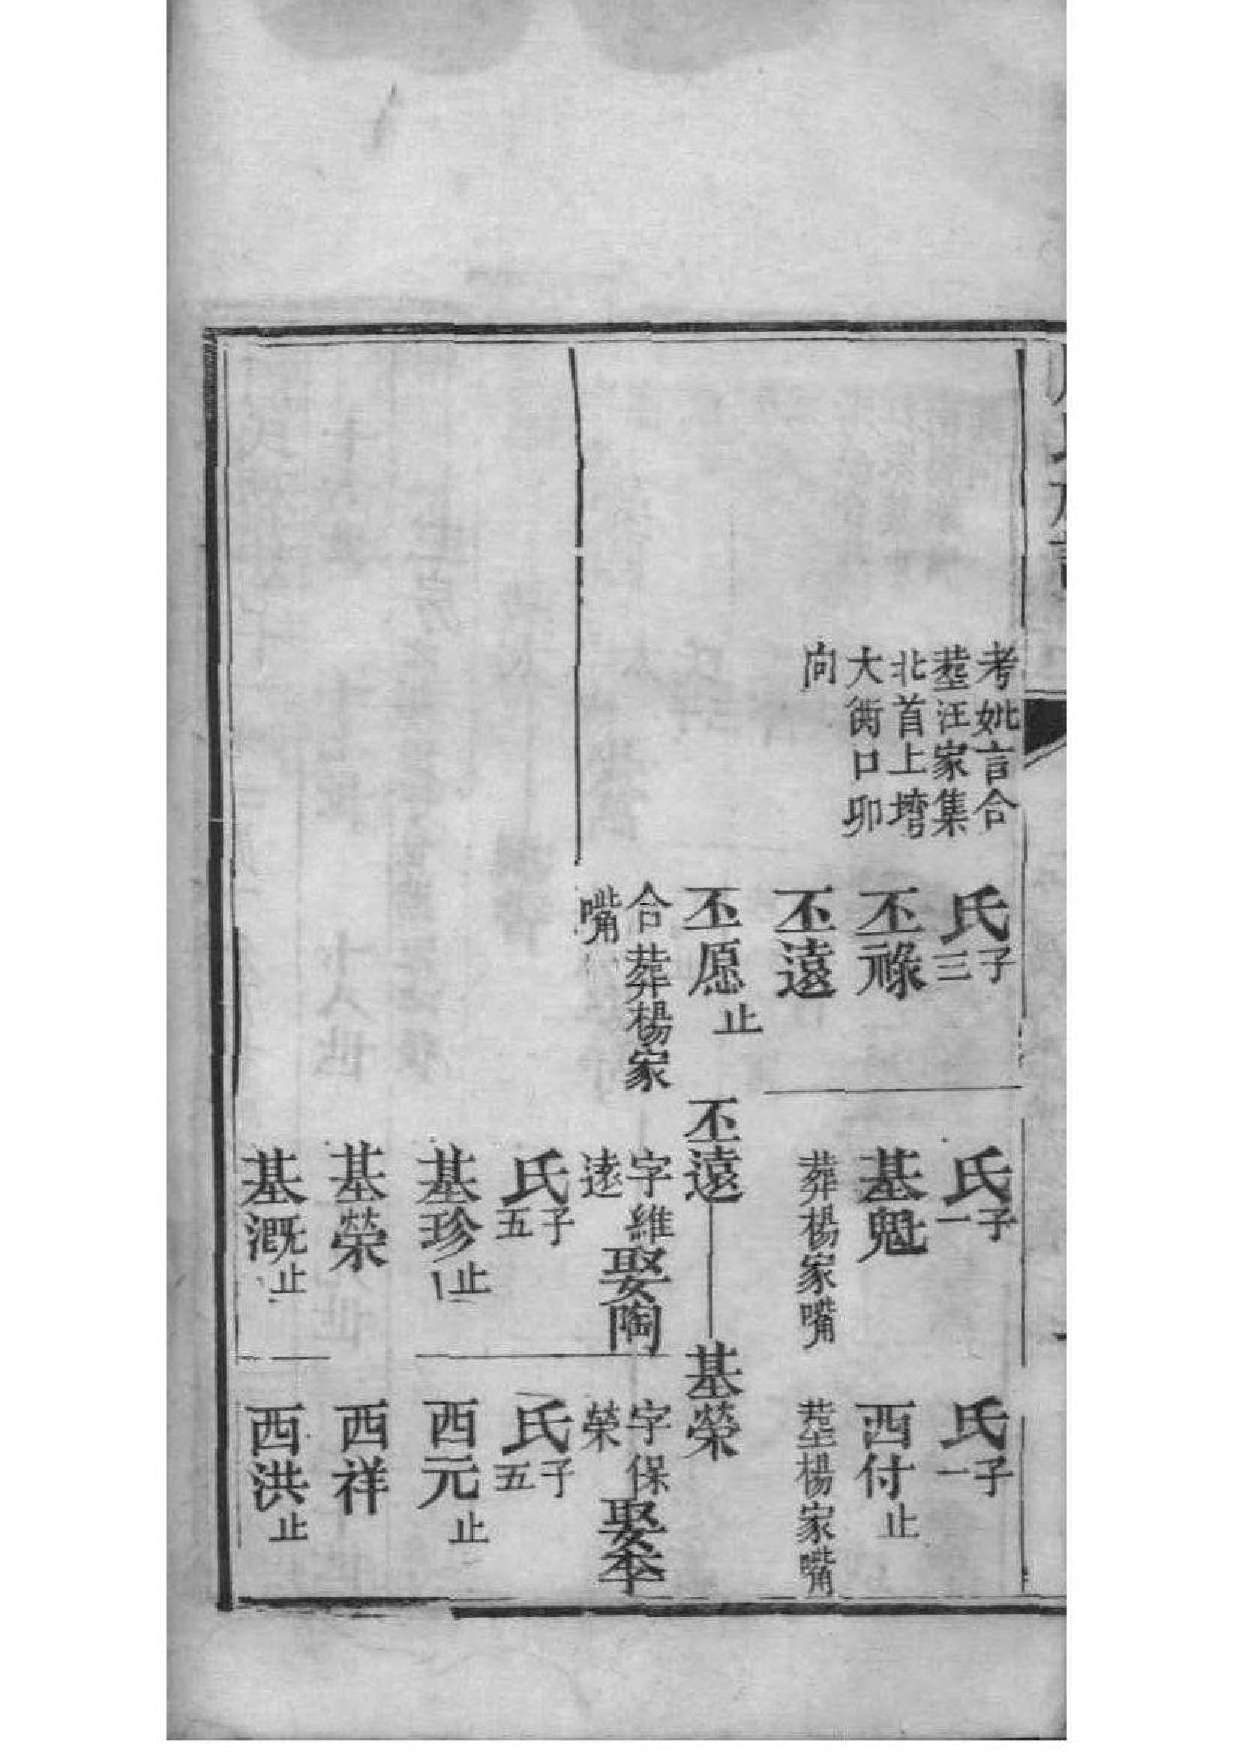 考妣言合
塟汪家集
北首上塆
大衖口卯
向
氏子三
丕祿
丕遠
丕愿止
合葬楊家
嘴
氏子一
基魁
葬楊家嘴
丕遠
字維
逺
娶陶
氏子五
基珍止
基榮
基溉止
氏子一
西付止
塟楊家嘴
基榮
字保
榮
娶李
氏子五
西元止
西祥
西洪止